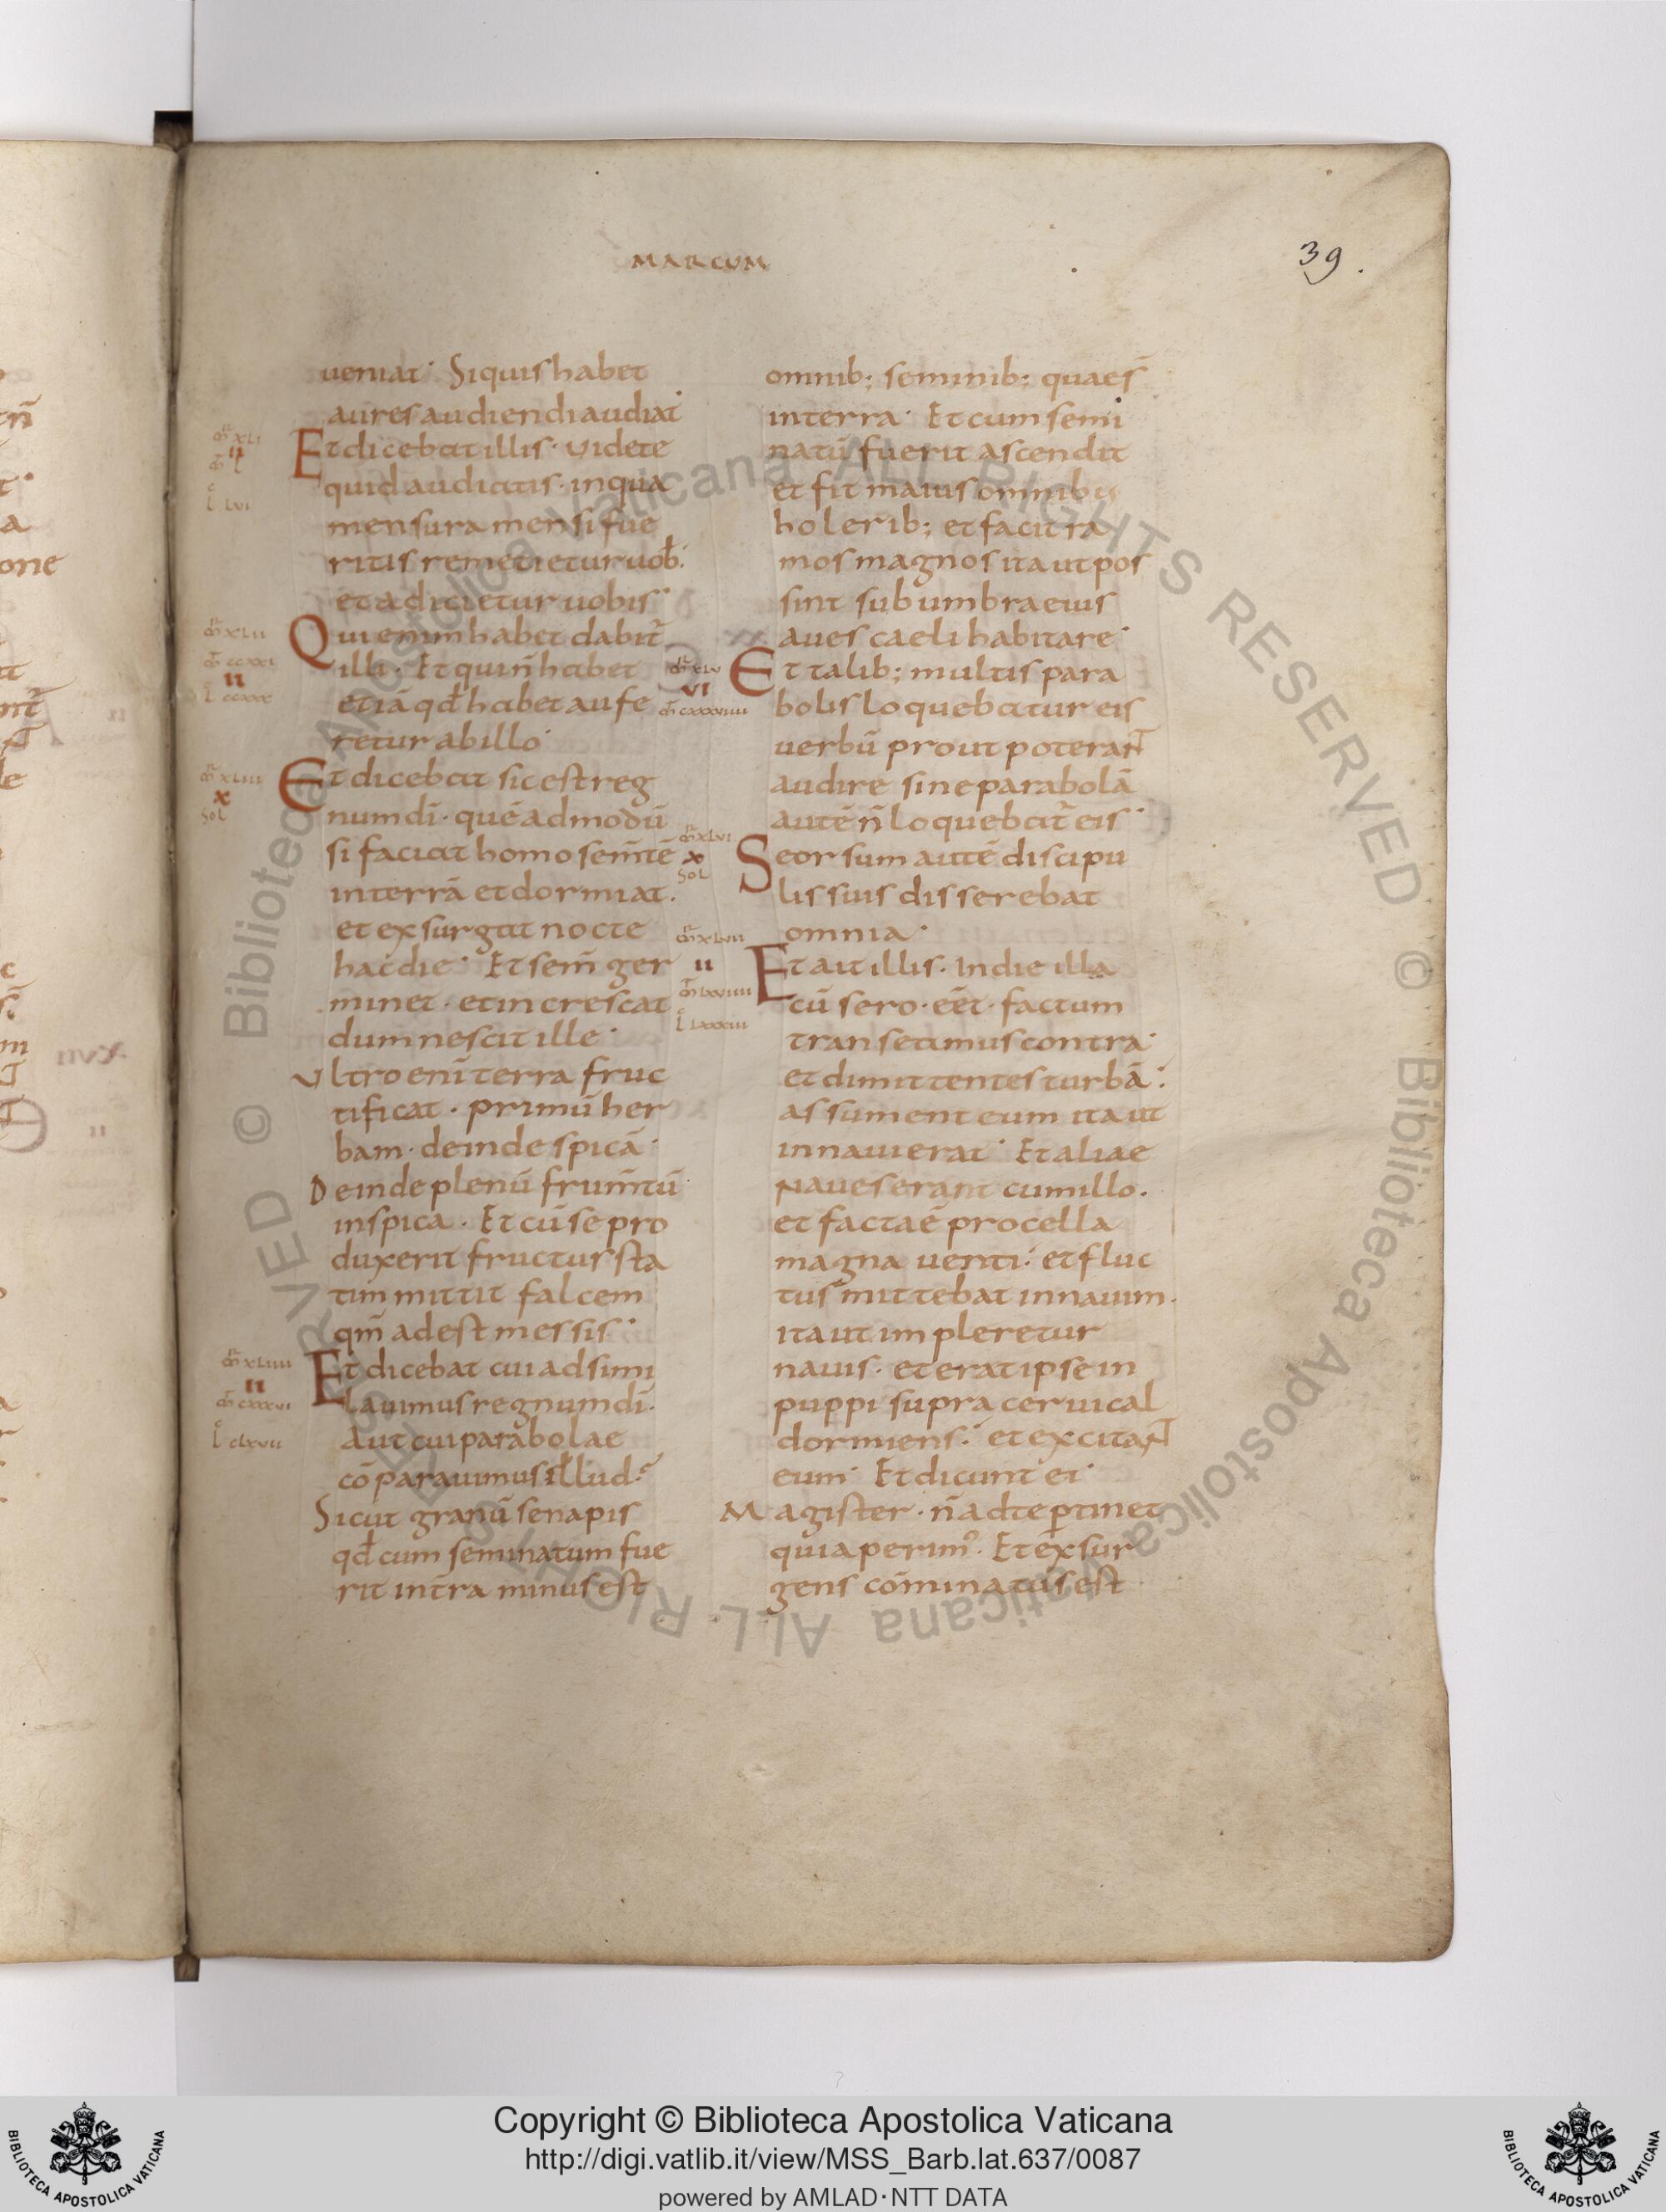 MARCUM
39.
ueniat· Siquis habet
aures audiendi audiat·
Et dicebat illis· Videte
quid audiatis· in qua
mensura mensi fue
ritis remetietur uob̄·
et adicietur uobis·
Qui enim habet dabit̄
illi· Et qui n̄ habet
etiā qd̄ habet aufe
retur ab illo·
Et dicebat sic est reg
num dī· quē admodū
si faciat homo sem̄tē
in terrā et dormiat·
et exsurgat nocte
hac die· Et sem̄ ger
minet· et increscat
dum nescit ille·
Ultro enī terra fruc
tificat· primū her
bam· deinde spicā·
Deinde plenū frum̄tū
in spica· Et cū se pro
duxerit fructur sta
tim mittit falcem
qm̄ adest messis·
Et dicebat cui adsimi
lauimus regnum dī·
Aut cui parabolae
cōparauimus illud·
Sicut granū senapis
qd̄ cum seminatum fue
rit in t̄ra minus est
omnib; seminib; quae s̄
in terra· Et cum semi
natū fuerit ascendit
et fit maius omnibus
holerib; et facit ra
mos magnos ita ut pos
sint sub umbra eius
aues caeli habitare·
Et talib; multis para
bolis loquebatur eis
uerbū prout poterant
audire sine parabolā
autē n̄ loquebat̄ eis·
Seorsum autē discipu
lis suis disserebat
omnia·
Et ait illis· In die illa
cū sero· eēt· factum
transeamus contra·
et dimittentes turbā·
assument eum ita ut
in naui erat· Et aliae
naues erant cum illo·
et facta ē procella
magna uenti· et fluc
tus mittebat in nauim·
ita ut impleretur
nauis· et erat ipse in
puppi supra ceruical
dormiens· et excitant
eum· Et dicunt ei·
Magister· n̄ ad te ꝑtinet
quia perim᾽· Et exsur
gens cōminatus est
XLI
II
L
LVI
XLII
CCXXX
XLIII
X
Sol
XLIIII
II
CXXXVI
CLXVII
XLV
VI
XLVI
X
Sol
XLVII
II
LXXXIII
Copyright © Biblioteca Apostolica Vaticana
http://digi.vatlib.it/view/MSS_Barb.lat.637/0087
powered by AMLAD·NTT DATA
BIBLIOTECA APOSTOLICA VATICANA
BIBLIOTECA APOSTOLICA VATICANA
© Biblioteca Apostolica Vaticana ALL RIGHTS RESERVED © Biblioteca Apostolica Vaticana ALL RIGHTS RESERVED